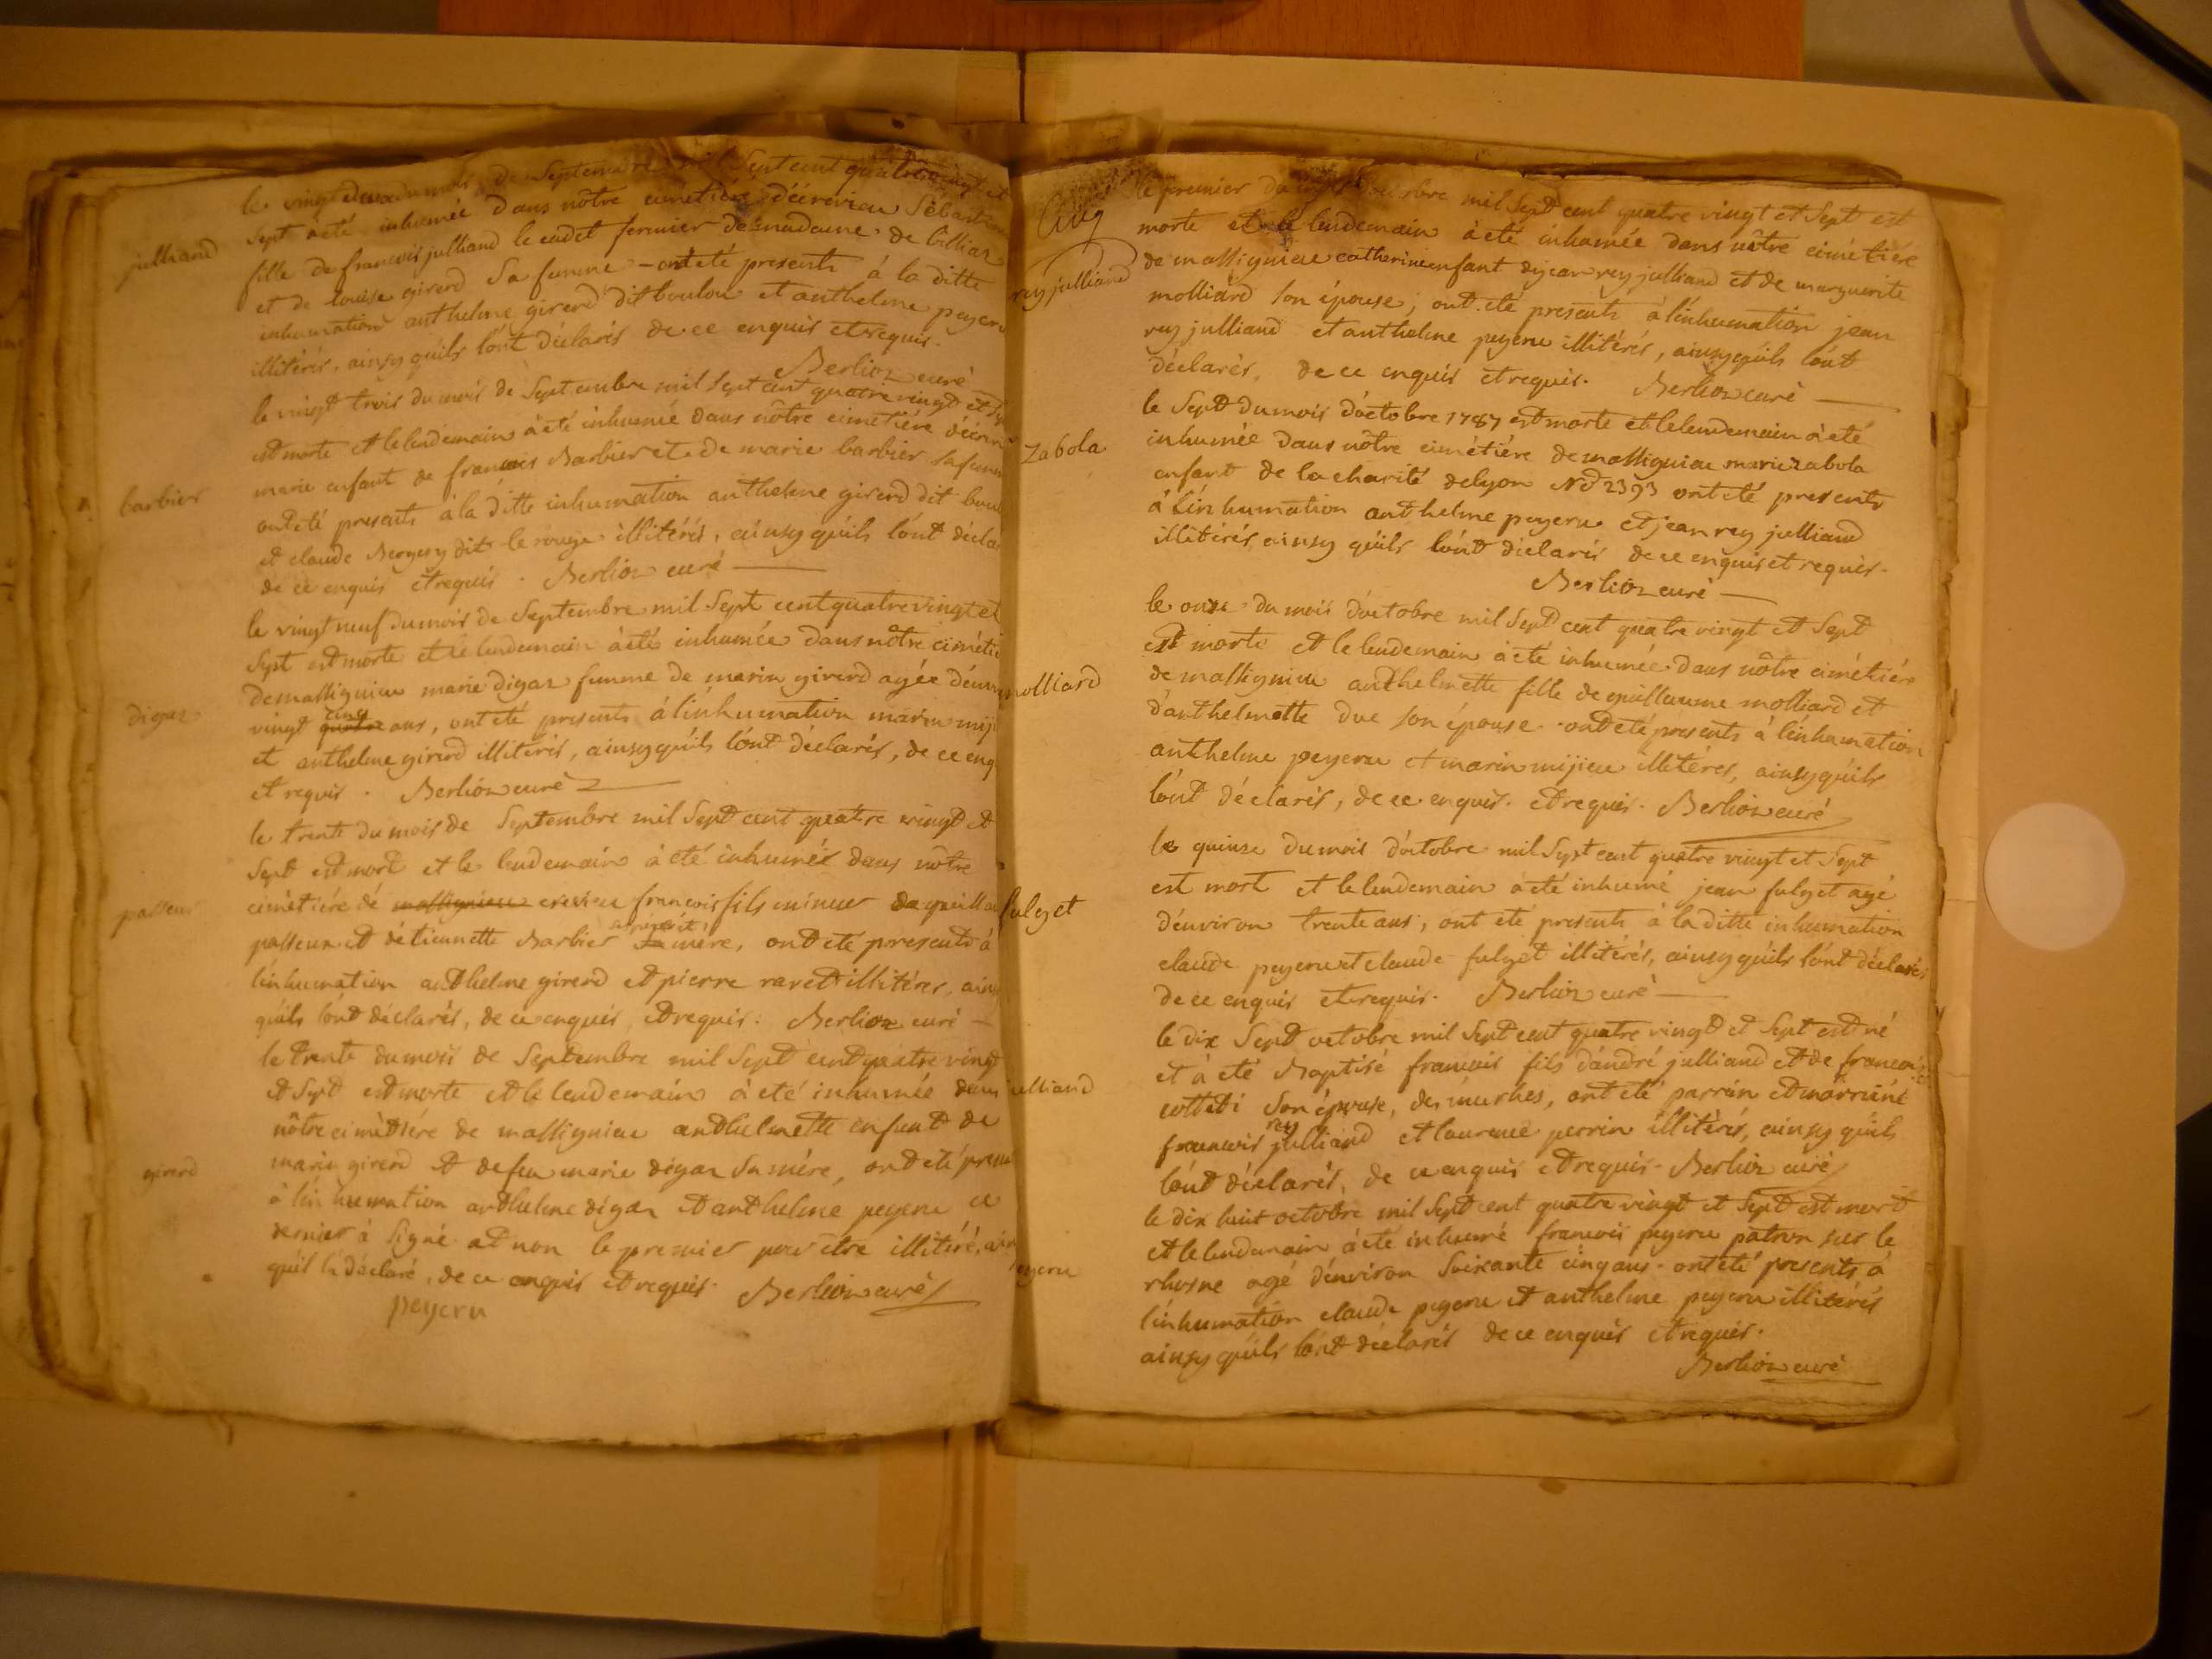 julliand
le vingt deux du mois de Septembre mil Sept cent quatre vingt et
Sept à eté inhumée dans nôtre cimétiére d'écrevieu Sébastienne
fille de francois julliand le cadet fermier de madame de billiaz
et de louise girerd Sa femme – ont eté presents à la ditte
inhumation anthelme girerd dit boulou et anthelme peyeru
illitérés, ainsy qu'ils l'ont déclarés de ce enquis et requis.
Berlioz curé
barbier
le vingt trois du mois de Septembre mil Sept cent quatre vingt et
est morte et le lendemain à eté inhumée dans nôtre cimétiére
marie enfant de francois Barbier et de marie barbier sa femme
ont eté presents à la ditte inhumation anthelme girerd dit boul
et claude Bergery dit le rouge illitérés, ainsy qu'ils l'ont décla
de ce enquis et requis. Berlioz curé
digaz
le vingt neuf du mois de Septembre mil Sept cent quatre vingt et
Sept est morte et le lendemain à eté inhumée dans nôtre cimétié
de massignieu marie digaz femme de marin girerd agée d'env
vingt quatre cinq ans, ont eté presents à l'inhumation marin miji
et anthelme girerd illitérés, ainsy qu'ils l'ont déclarés, de ce enq
et requis. Berlioz curé
passeur
le trente du mois de Septembre mil Sept cent quatre vingt et
Sept est mort et le lendemain à eté inhumé dans nôtre
cimétiére de massignieu crevieu francois fils mineur de guillau
passeur et d'étiennette Barbier sa mére, ont eté presents à
l'inhumation anthelme girerd et pierre ravet illitérés, ains
qu'ils l'ont déclarés, de ce enquis, et requis. Berlioz curé
girerd
le trente du mois de Septembre mil Sept cent quatre vingt
et Sept est morte et le lendemain à eté inhumée dans
nôtre cimétiére de massignieu anthelmette enfant de
marin girerd et de feu marie digaz Sa mére, ont eté prese
à l'inhumation anthelme digaz et anthelme peyeru ce
dernier à Signé et non le premier pour être illitéré, ain
qu'il l'a déclaré, de ce enquis et requis. Berlioz curé
peyeru
rey julliand
le premier du mois d'octobre mil Sept cent quatre vingt et Sept est
morte et le lendemain à eté inhumée dans nôtre cimétiére
de massignieu catherine enfant de jean rey julliand et de marguerite
molliard son épouse; ont eté presents à l'inhumation jean
rey julliand et anthelme peyeru illitérés, ainsy qu'ils l'ont
déclarés, de ce enquis et requis. Berlioz curé
Zabola
le Sept du mois d'octobre 1787 est morte et le lendemain à eté
inhumée dans nôtre cimétiére de massignieu marie zabola
enfant de la charité de lyon No 2393 ont eté presents
à l'inhumation anthelme peyeru et jean rey julliand
illitérés, ainsy qu'ils l'ont déclarés de ce enquis et requis.
Berlioz curé
molliard
le onze du mois d'octobre mil Sept cent quatre vingt et Sept
est morte et le lendemain à eté inhumée dans nôtre cimétiére
de massignieu anthelmette fille de guillaume molliard et
d'anthelmette duc son épouse. ont eté presents à l'inhumation
anthelme peyeru et marin mijieu illitérés, ainsy qu'ils
l'ont déclarés, de ce enquis et requis. Berlioz curé
fulget
le quinze du mois d'octobre mil Sept cent quatre vingt et Sept
est mort et le lendemain à eté inhumé jean fulget agé
d'environ trente ans; ont eté presents à la ditte inhumation
claude peyeru et claude fulget illitérés, ainsy qu'ils l'ont déclarés
de ce enquis et requis. Berlioz curé
julliand
le dix Sept octobre mil Sept cent quatre vingt et Sept est né
et à eté Baptisé francois fils d'andré julliand et de francoise
cotteti Son épouse, des murhes, ont eté parrin et márriéne
francois rey julliand et laurence perrin illitérés, ainsy qu'ils
l'ont déclarés, de ce enquis et requis. Berlioz curé
peyeru
le dix huit octobre mil Sept cent quatre vingt et Sept est mort
et le lendemain à eté inhumé francois peyeru patron sur le
rhosne agé d'environ Soixante cinq ans. ont eté presents à
l'inhumation claude peyeru et anthelme peyeru illitérés
ainsy qu'ils l'ont déclarés de ce enquis et requis.
Berlioz curé